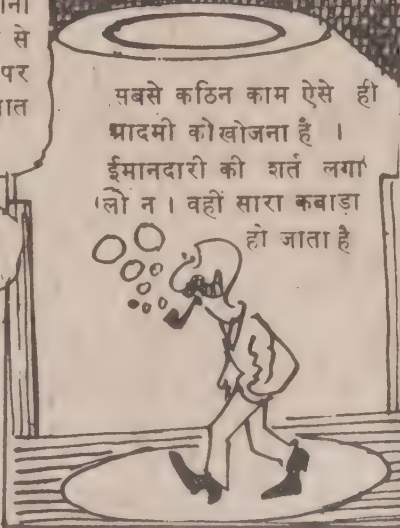 ना
से
पर
ात
सबसे कठिन काम ऐसे ही
आदमी को खोजना है ।
ईमानदारी की शर्त लगा
लो न । वहीं सारा कबाड़ा
हो जाता है